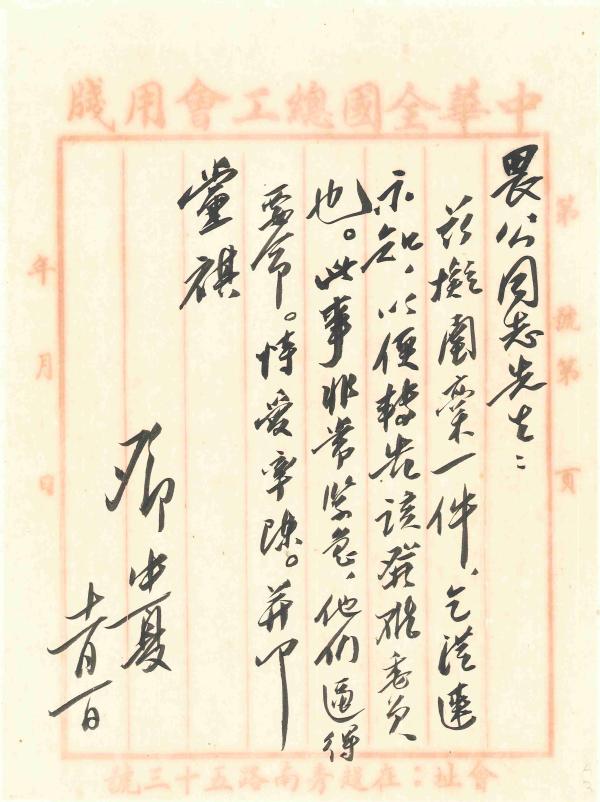 中華全國總工會用牋
第 號第 頁
畏公同志先生：
茲擬團稟一件，乞從速
示知，以便轉告該罷船委員
也。此事非常緊急，他们逼得
要命。恃爱率陳。并叩
黨祺
鄧中夏
十一月一日
年 月 日
會址：在越秀南路五十三號